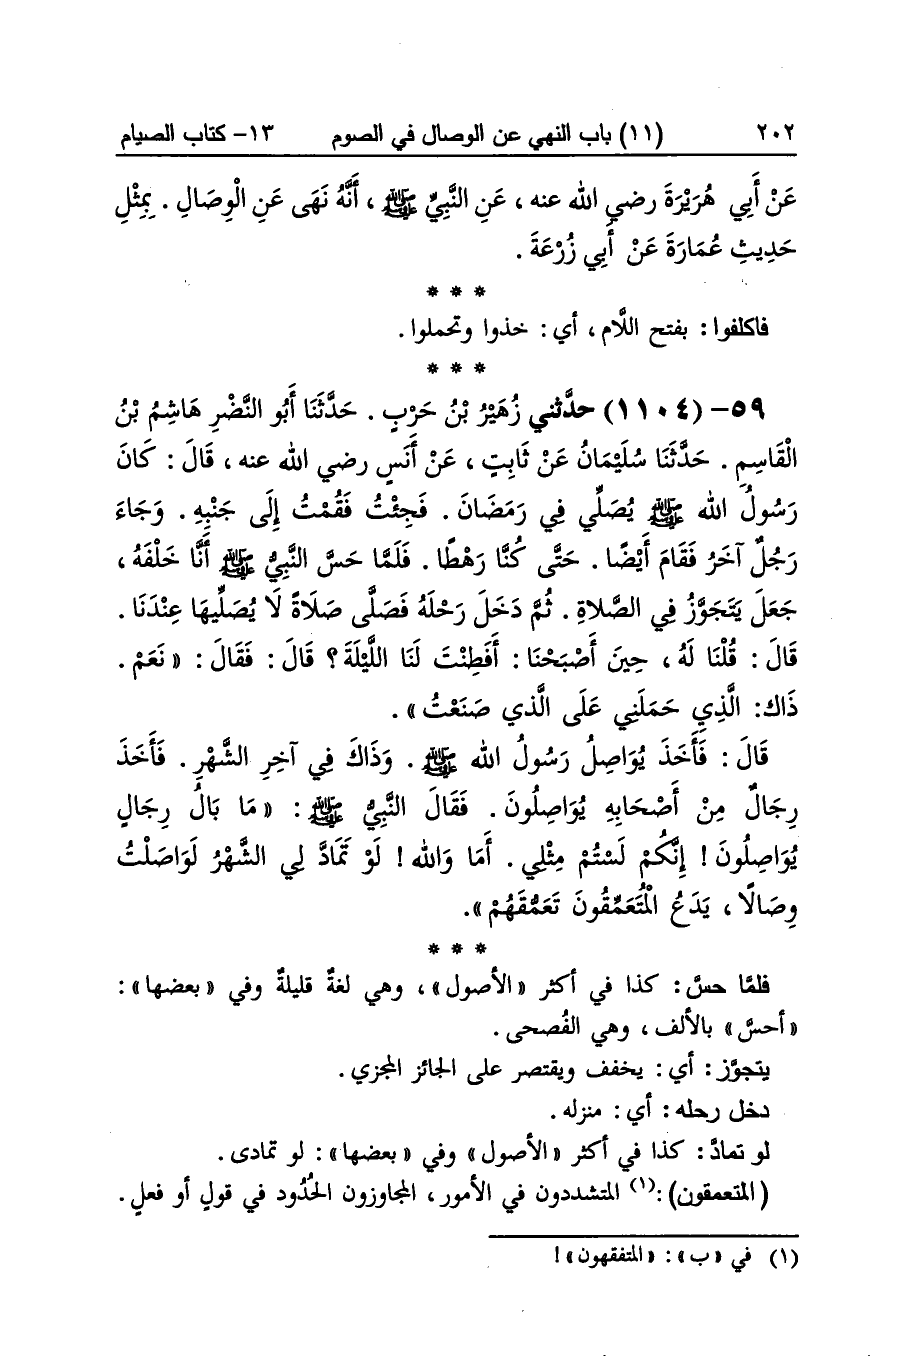 ٢٠٢ (١١) باب النهي عن الوصال في الصوم ١٣- كتاب الصيام
عَنْ أَبِي هُرَيْرَةَ رضي الله عنه ، عَنِ النَّبِيِّ ﷺ ، أَنَّهُ نَهَى عَنِ الْوِصَالِ . بِمِثْلِ
حَدِيثِ عُمَارَةَ عَنْ أَبِي زُرْعَةَ .
* * *
فاكلفوا : بفتح اللَّام ، أي : خذوا وتحملوا .
* * *
٥٩- (١١٠٤) حدَّثني زُهَيْرُ بْنُ حَرْبٍ . حَدَّثَنَا أَبُو النَّضْرِ هَاشِمُ بْنُ
الْقَاسِمِ . حَدَّثَنَا سُلَيْمَانُ عَنْ ثَابِتٍ ، عَنْ أَنَسٍ رضي الله عنه ، قَالَ : كَانَ
رَسُولُ الله ﷺ يُصَلِّي فِي رَمَضَانَ . فَجِئْتُ فَقُمْتُ إِلَى جَنْبِهِ . وَجَاءَ
رَجُلٌ آخَرُ فَقَامَ أَيْضًا . حَتَّى كُنَّا رَهْطًا . فَلَمَّا حَسَّ النَّبِيُّ ﷺ أَنَّا خَلْفَهُ ،
جَعَلَ يَتَجَوَّزُ فِي الصَّلاةِ . ثُمَّ دَخَلَ رَحْلَهُ فَصَلَّى صَلَاةً لَا يُصَلِّيهَا عِنْدَنَا .
قَالَ : قُلْنَا لَهُ ، حِينَ أَصْبَحْنَا : أَفَطِنْتَ لَنَا اللَّيْلَةَ ؟ قَالَ : فَقَالَ : « نَعَمْ .
ذَاكَ: الَّذِي حَمَلَنِي عَلَى الَّذي صَنَعْتُ» .
قَالَ : فَأَخَذَ يُوَاصِلُ رَسُولُ الله ﷺ . وَذَاكَ فِي آخِرِ الشَّهْرِ . فَأَخَذَ
رِجَالٌ مِنْ أَصْحَابِهِ يُوَاصِلُونَ . فَقَالَ النَّبِيُّ ﷺ : « مَا بَالُ رِجَالٍ
يُوَاصِلُونَ ! إِنَّكُمْ لَسْتُمْ مِثْلِي . أَمَا وَالله ! لَوْ تَمَادَّ لِي الشَّهْرُ لَوَاصَلْتُ
وِصَالًا ، يَدَعُ الْمُتَعَمِّقُونَ تَعَمُّقَهُمْ ».
* * *
فلمَّا حسَّ : كذا في أكثر «الأصول» ، وهي لغةٌ قليلةٌ وفي «بعضها» :
«أحسَّ» بالألف ، وهي الفُصحى .
يتجوَّز : أي : يخفف ويقتصر على الجائز المجزي .
دخل رحله : أي : منزله .
لو تمادَّ : كذا في أكثر «الأصول» وفي «بعضها» : لو تمادى .
(المتعمقون) :(١) المتشددون في الأمور ، المجاوزون الحُدُود في قولٍ أو فعلٍ .
(١) في «ب» : «المتفقهون» !